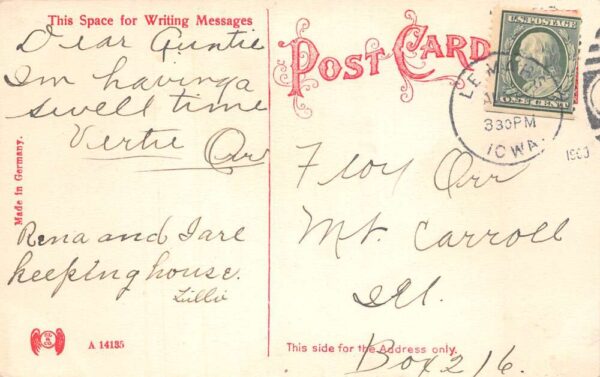 This Space for Writing Messages
Dear Auntie
Im having a
swell time
Vertie Orr
Rena and I are
keeping house.
Lillie
Made in Germany.
A 14135
POST CARD
U.S. POSTAGE
ONE CENT
LE M
330PM
IOWA
Floy Orr
Mt. Carroll
Ill.
This side for the Address only.
Box 216.